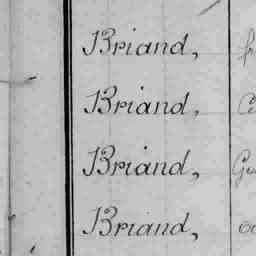 Briand,
Briand,
Briand,
Briand,